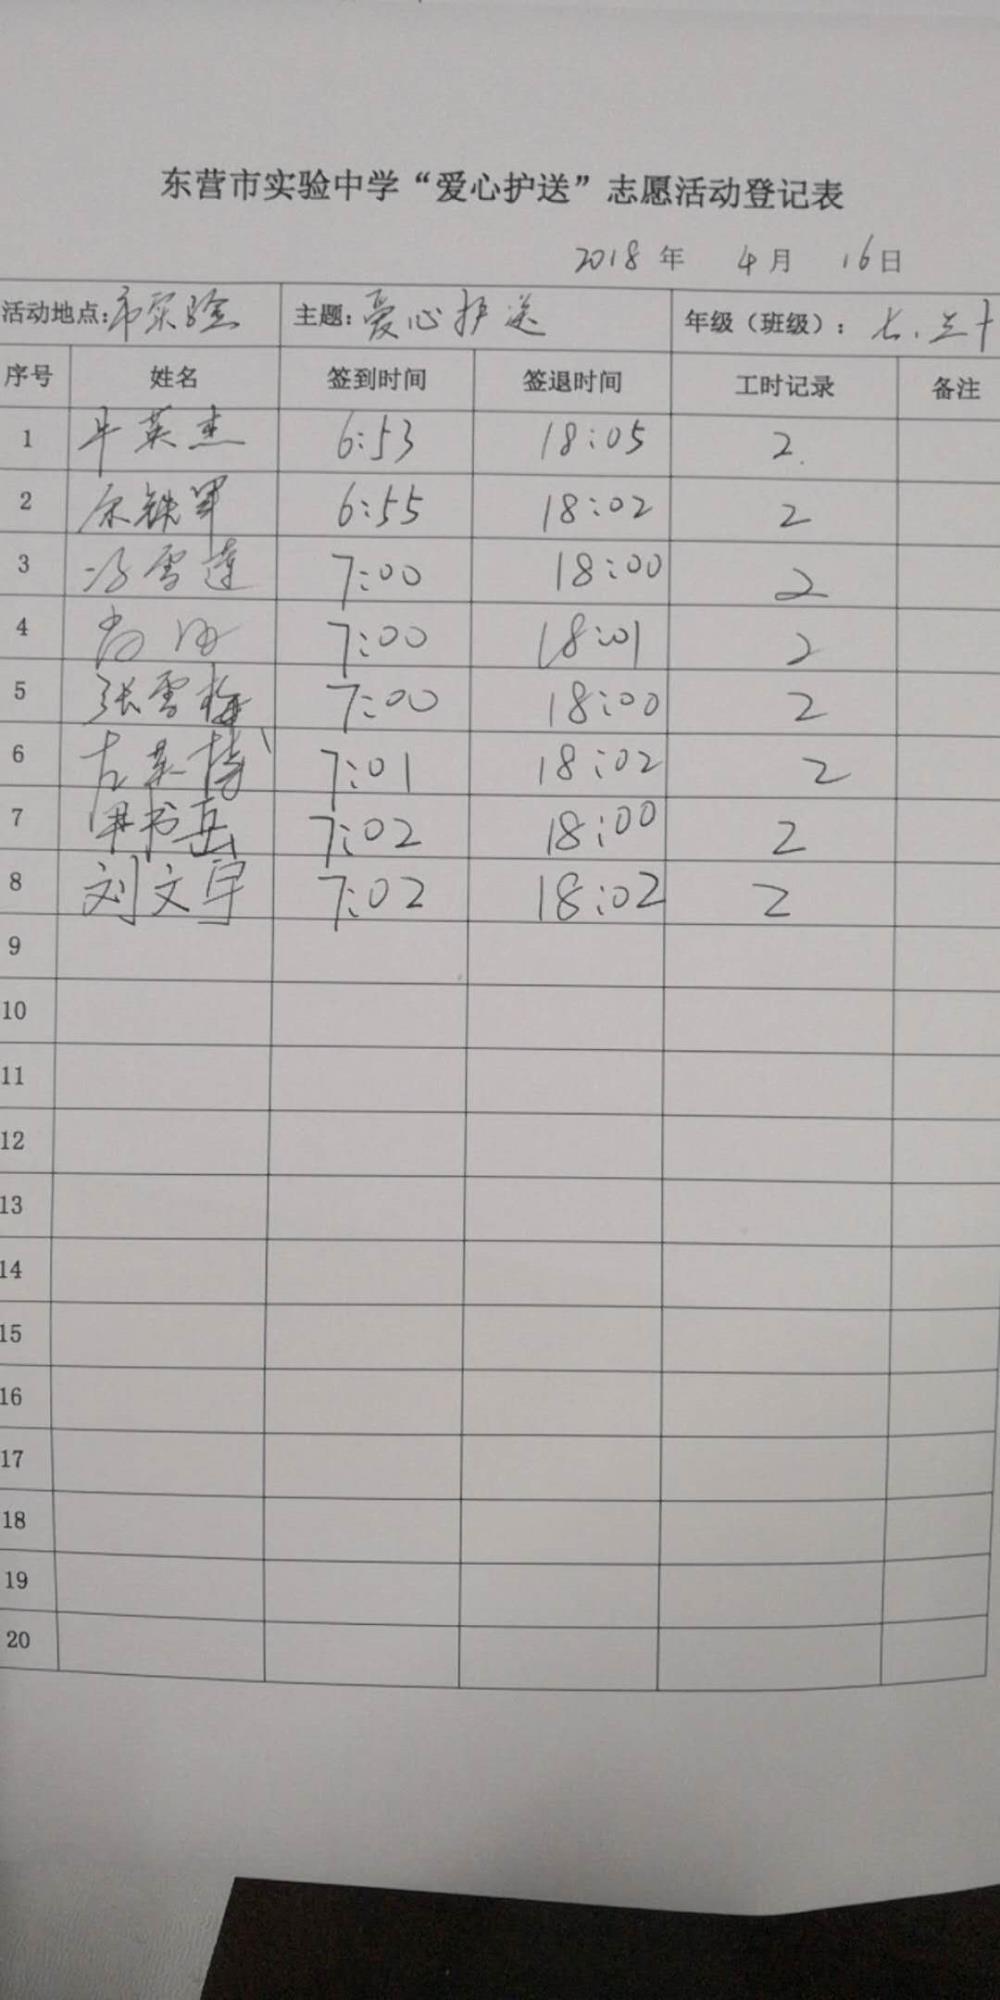 东营市实验中学“爱心护送”志愿活动登记表
2018 年 4 月 16 日
活动地点: 市实验 主题: 爱心护送 年级（班级）: 七.三十
序号 姓名 签到时间 签退时间 工时记录 备注
1 牛英杰 6:53 18:05 2
2 宋铁军 6:55 18:02 2
3 冯雪莲 7:00 18:00 2
4 7:00 18:01 2
5 张雪梅 7:00 18:00 2
6 7:01 18:02 2
7 7:02 18:00 2
8 刘文宇 7:02 18:02 2
9
10
11
12
13
14
15
16
17
18
19
20